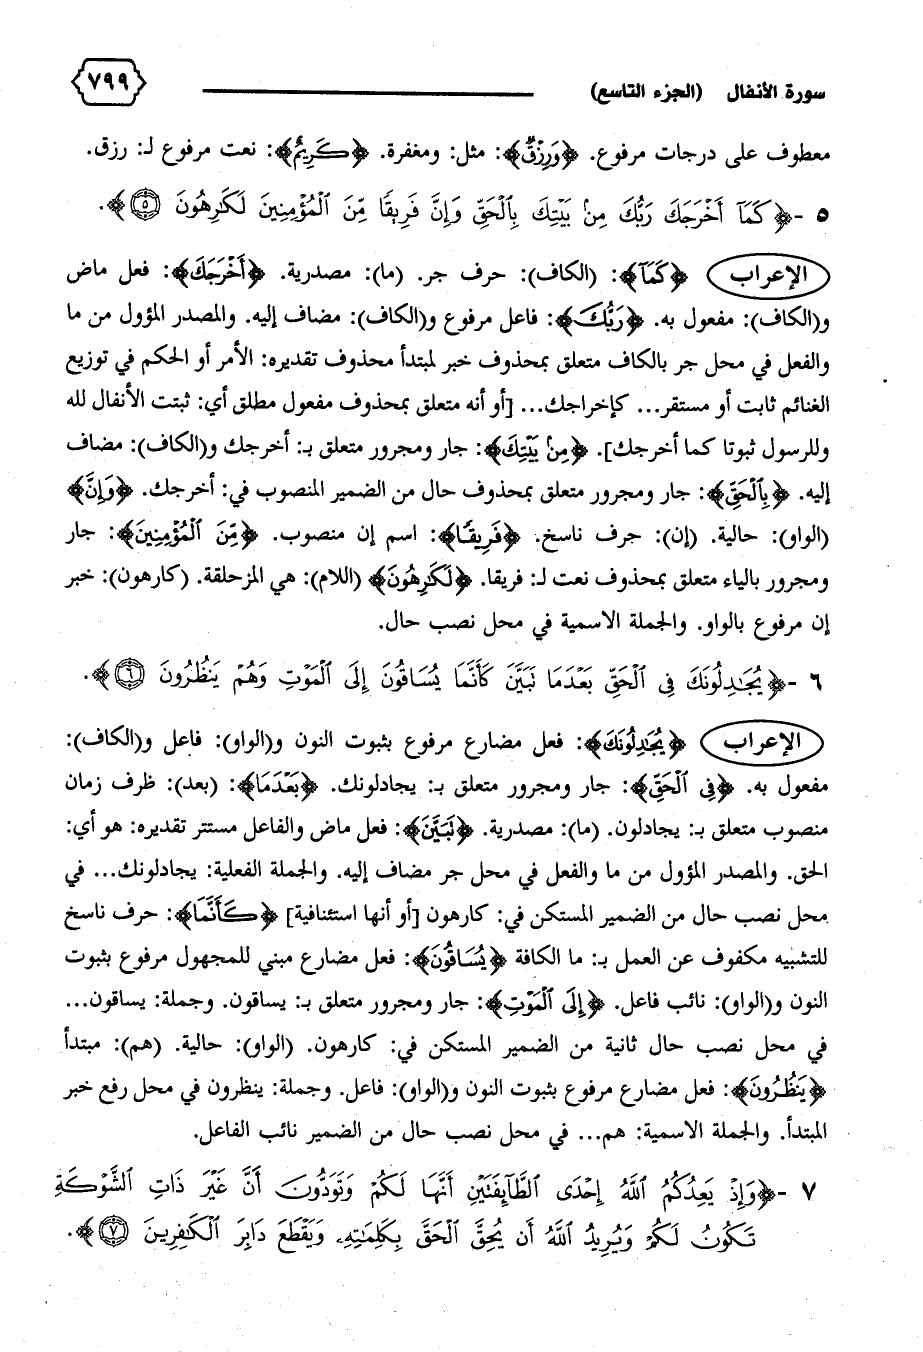 سورة الأنفال (الجزء التاسع) ٧٩٩
معطوف على درجات مرفوع. ﴿وَرِزْقٌ﴾: مثل: ومغفرة. ﴿كَرِيمٌ﴾: نعت مرفوع لـ: رزق.
٥ -﴿كَمَآ أَخْرَجَكَ رَبُّكَ مِنۢ بَيْتِكَ بِٱلْحَقِّ وَإِنَّ فَرِيقًا مِّنَ ٱلْمُؤْمِنِينَ لَكَٰرِهُونَ ۝٥﴾.
الإعراب ﴿كَمَآ﴾: (الكاف): حرف جر. (ما): مصدرية. ﴿أَخْرَجَكَ﴾: فعل ماض
و(الكاف): مفعول به. ﴿رَبُّكَ﴾: فاعل مرفوع و(الكاف): مضاف إليه. والمصدر المؤول من ما
والفعل في محل جر بالكاف متعلق بمحذوف خبر لمبتدأ محذوف تقديره: الأمر أو الحكم في توزيع
الغنائم ثابت أو مستقر... كإخراجك... [أو أنه متعلق بمحذوف مفعول مطلق أي: ثبتت الأنفال لله
وللرسول ثبوتا كما أخرجك]. ﴿مِنۢ بَيْتِكَ﴾: جار ومجرور متعلق بـ: أخرجك و(الكاف): مضاف
إليه. ﴿بِٱلْحَقِّ﴾: جار ومجرور متعلق بمحذوف حال من الضمير المنصوب في: أخرجك. ﴿وَإِنَّ﴾
(الواو): حالية. (إن): حرف ناسخ. ﴿فَرِيقًا﴾: اسم إن منصوب. ﴿مِّنَ ٱلْمُؤْمِنِينَ﴾: جار
ومجرور بالياء متعلق بمحذوف نعت لـ: فريقا. ﴿لَكَٰرِهُونَ﴾ (اللام): هي المزحلقة. (كارهون): خبر
إن مرفوع بالواو. والجملة الاسمية في محل نصب حال.
٦ -﴿يُجَٰدِلُونَكَ فِى ٱلْحَقِّ بَعْدَمَا تَبَيَّنَ كَأَنَّمَا يُسَاقُونَ إِلَى ٱلْمَوْتِ وَهُمْ يَنظُرُونَ ۝٦﴾.
الإعراب ﴿يُجَٰدِلُونَكَ﴾: فعل مضارع مرفوع بثبوت النون و(الواو): فاعل و(الكاف):
مفعول به. ﴿فِى ٱلْحَقِّ﴾: جار ومجرور متعلق بـ: يجادلونك. ﴿بَعْدَمَا﴾: (بعد): ظرف زمان
منصوب متعلق بـ: يجادلون. (ما): مصدرية. ﴿تَبَيَّنَ﴾: فعل ماض والفاعل مستتر تقديره: هو أي:
الحق. والمصدر المؤول من ما والفعل في محل جر مضاف إليه. والجملة الفعلية: يجادلونك... في
محل نصب حال من الضمير المستكن في: كارهون [أو أنها استئنافية] ﴿كَأَنَّمَا﴾: حرف ناسخ
للتشبيه مكفوف عن العمل بـ: ما الكافة ﴿يُسَاقُونَ﴾: فعل مضارع مبني للمجهول مرفوع بثبوت
النون و(الواو): نائب فاعل. ﴿إِلَى ٱلْمَوْتِ﴾: جار ومجرور متعلق بـ: يساقون. وجملة: يساقون...
في محل نصب حال ثانية من الضمير المستكن في: كارهون. (الواو): حالية. (هم): مبتدأ
﴿يَنظُرُونَ﴾: فعل مضارع مرفوع بثبوت النون و(الواو): فاعل. وجملة: ينظرون في محل رفع خبر
المبتدأ. والجملة الاسمية: هم... في محل نصب حال من الضمير نائب الفاعل.
٧ -﴿وَإِذْ يَعِدُكُمُ ٱللَّهُ إِحْدَى ٱلطَّآئِفَتَيْنِ أَنَّهَا لَكُمْ وَتَوَدُّونَ أَنَّ غَيْرَ ذَاتِ ٱلشَّوْكَةِ
تَكُونُ لَكُمْ وَيُرِيدُ ٱللَّهُ أَن يُحِقَّ ٱلْحَقَّ بِكَلِمَٰتِهِۦ وَيَقْطَعَ دَابِرَ ٱلْكَٰفِرِينَ ۝٧﴾.